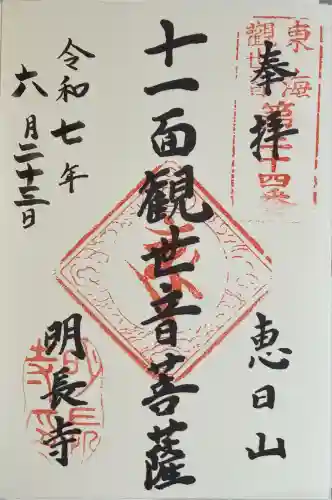 奉拝
東海
觀世音
恵日山
十一面観世音菩薩
令和七年
六月二十三日
明長寺